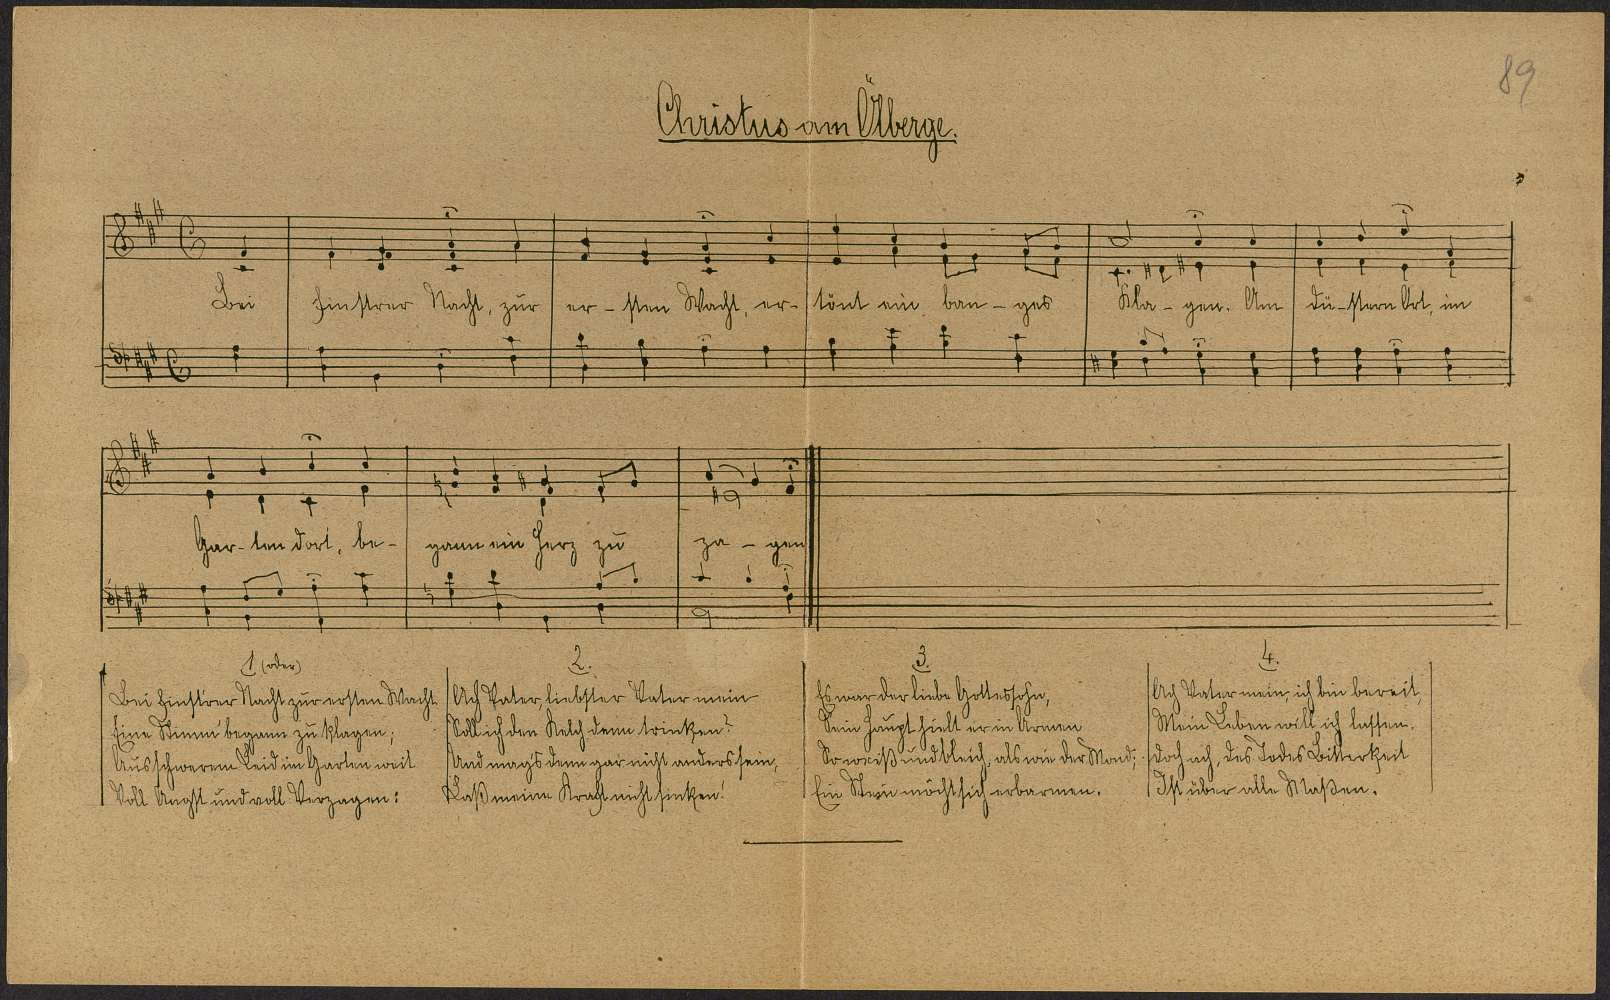 89
Christus am Ölberge.
Bei finstrer Nacht, zur er-sten Wacht, er-tönt ein ban-ges Kla-gen. Am dü-stern Ort, im
Gar-ten dort, be-gann ein Herz zu za-gen
1 (oder)
Bei finst'rer Nacht zur ersten Wacht
Eine Stimm' begann zu klagen;
Aus schwerem Leid im Garten weit
Voll Angst und voll Verzagen:
2.
Ach Vater, liebster Vater mein
Soll ich den Kelch denn trinken?
Und mags denn gar nicht anders sein,
Laß meine Kraft nicht sinken!
3.
Es war der liebe Gottessohn,
Sein Haupt hielt er in Armen
So weiß und bleich, als wie der Mond;
Ein Stein möcht sich erbarmen.
4.
Ach Vater mein, ich bin bereit,
Mein Leben will ich lassen.
Doch ach, des Todes Bitterkeit
Ist über alle Maßen.